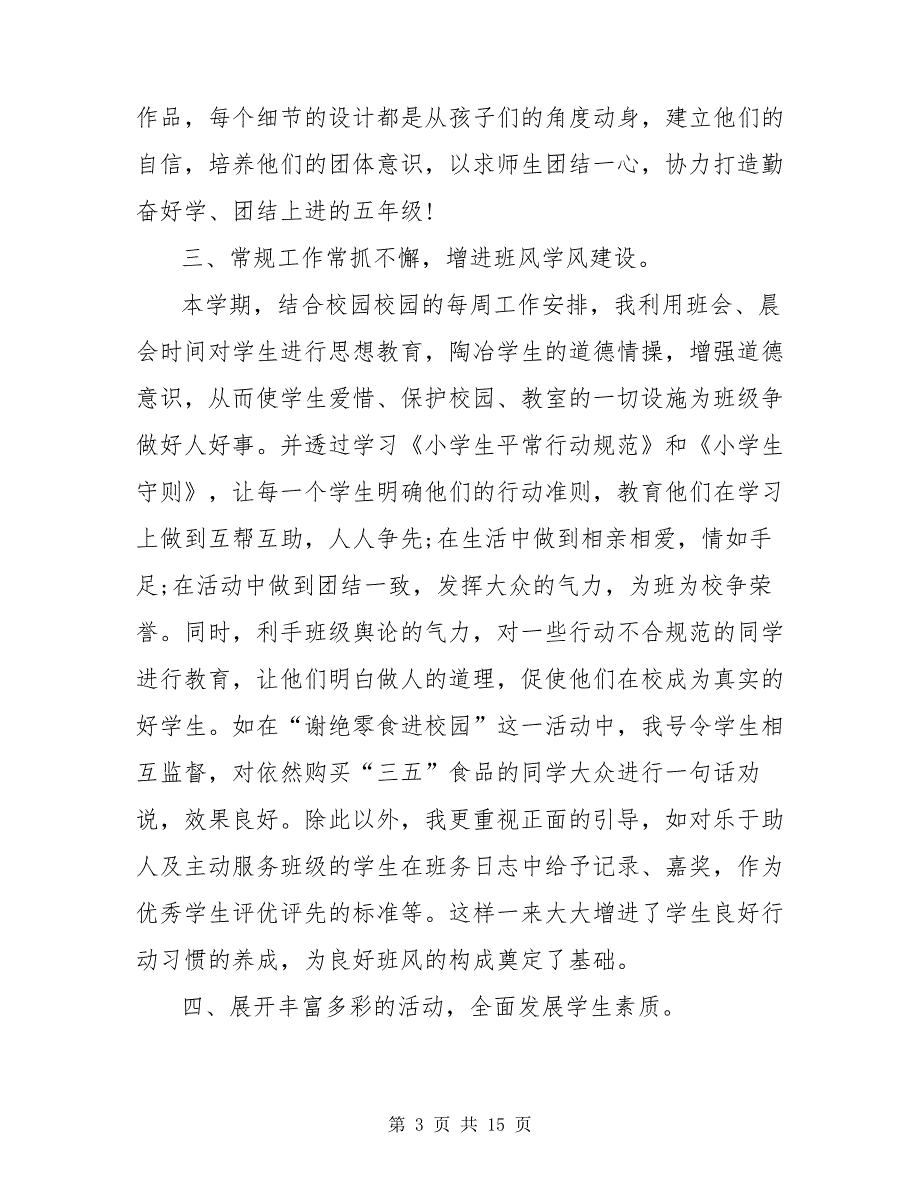 作品，每个细节的设计都是从孩子们的角度动身，建立他们的
自信，培养他们的团体意识，以求师生团结一心，协力打造勤
奋好学、团结上进的五年级!
三、常规工作常抓不懈，增进班风学风建设。
本学期，结合校园校园的每周工作安排，我利用班会、晨
会时间对学生进行思想教育，陶冶学生的道德情操，增强道德
意识，从而使学生爱惜、保护校园、教室的一切设施为班级争
做好人好事。并透过学习《小学生平常行动规范》和《小学生
守则》，让每一个学生明确他们的行动准则，教育他们在学习
上做到互帮互助，人人争先;在生活中做到相亲相爱，情如手
足;在活动中做到团结一致，发挥大众的气力，为班为校争荣
誉。同时，利手班级舆论的气力，对一些行动不合规范的同学
进行教育，让他们明白做人的道理，促使他们在校成为真实的
好学生。如在“谢绝零食进校园”这一活动中，我号令学生相
互监督，对依然购买“三五”食品的同学大众进行一句话劝
说，效果良好。除此以外，我更重视正面的引导，如对乐于助
人及主动服务班级的学生在班务日志中给予记录、嘉奖，作为
优秀学生评优评先的标准等。这样一来大大增进了学生良好行
动习惯的养成，为良好班风的构成奠定了基础。
四、展开丰富多彩的活动，全面发展学生素质。
第 3 页 共 15 页